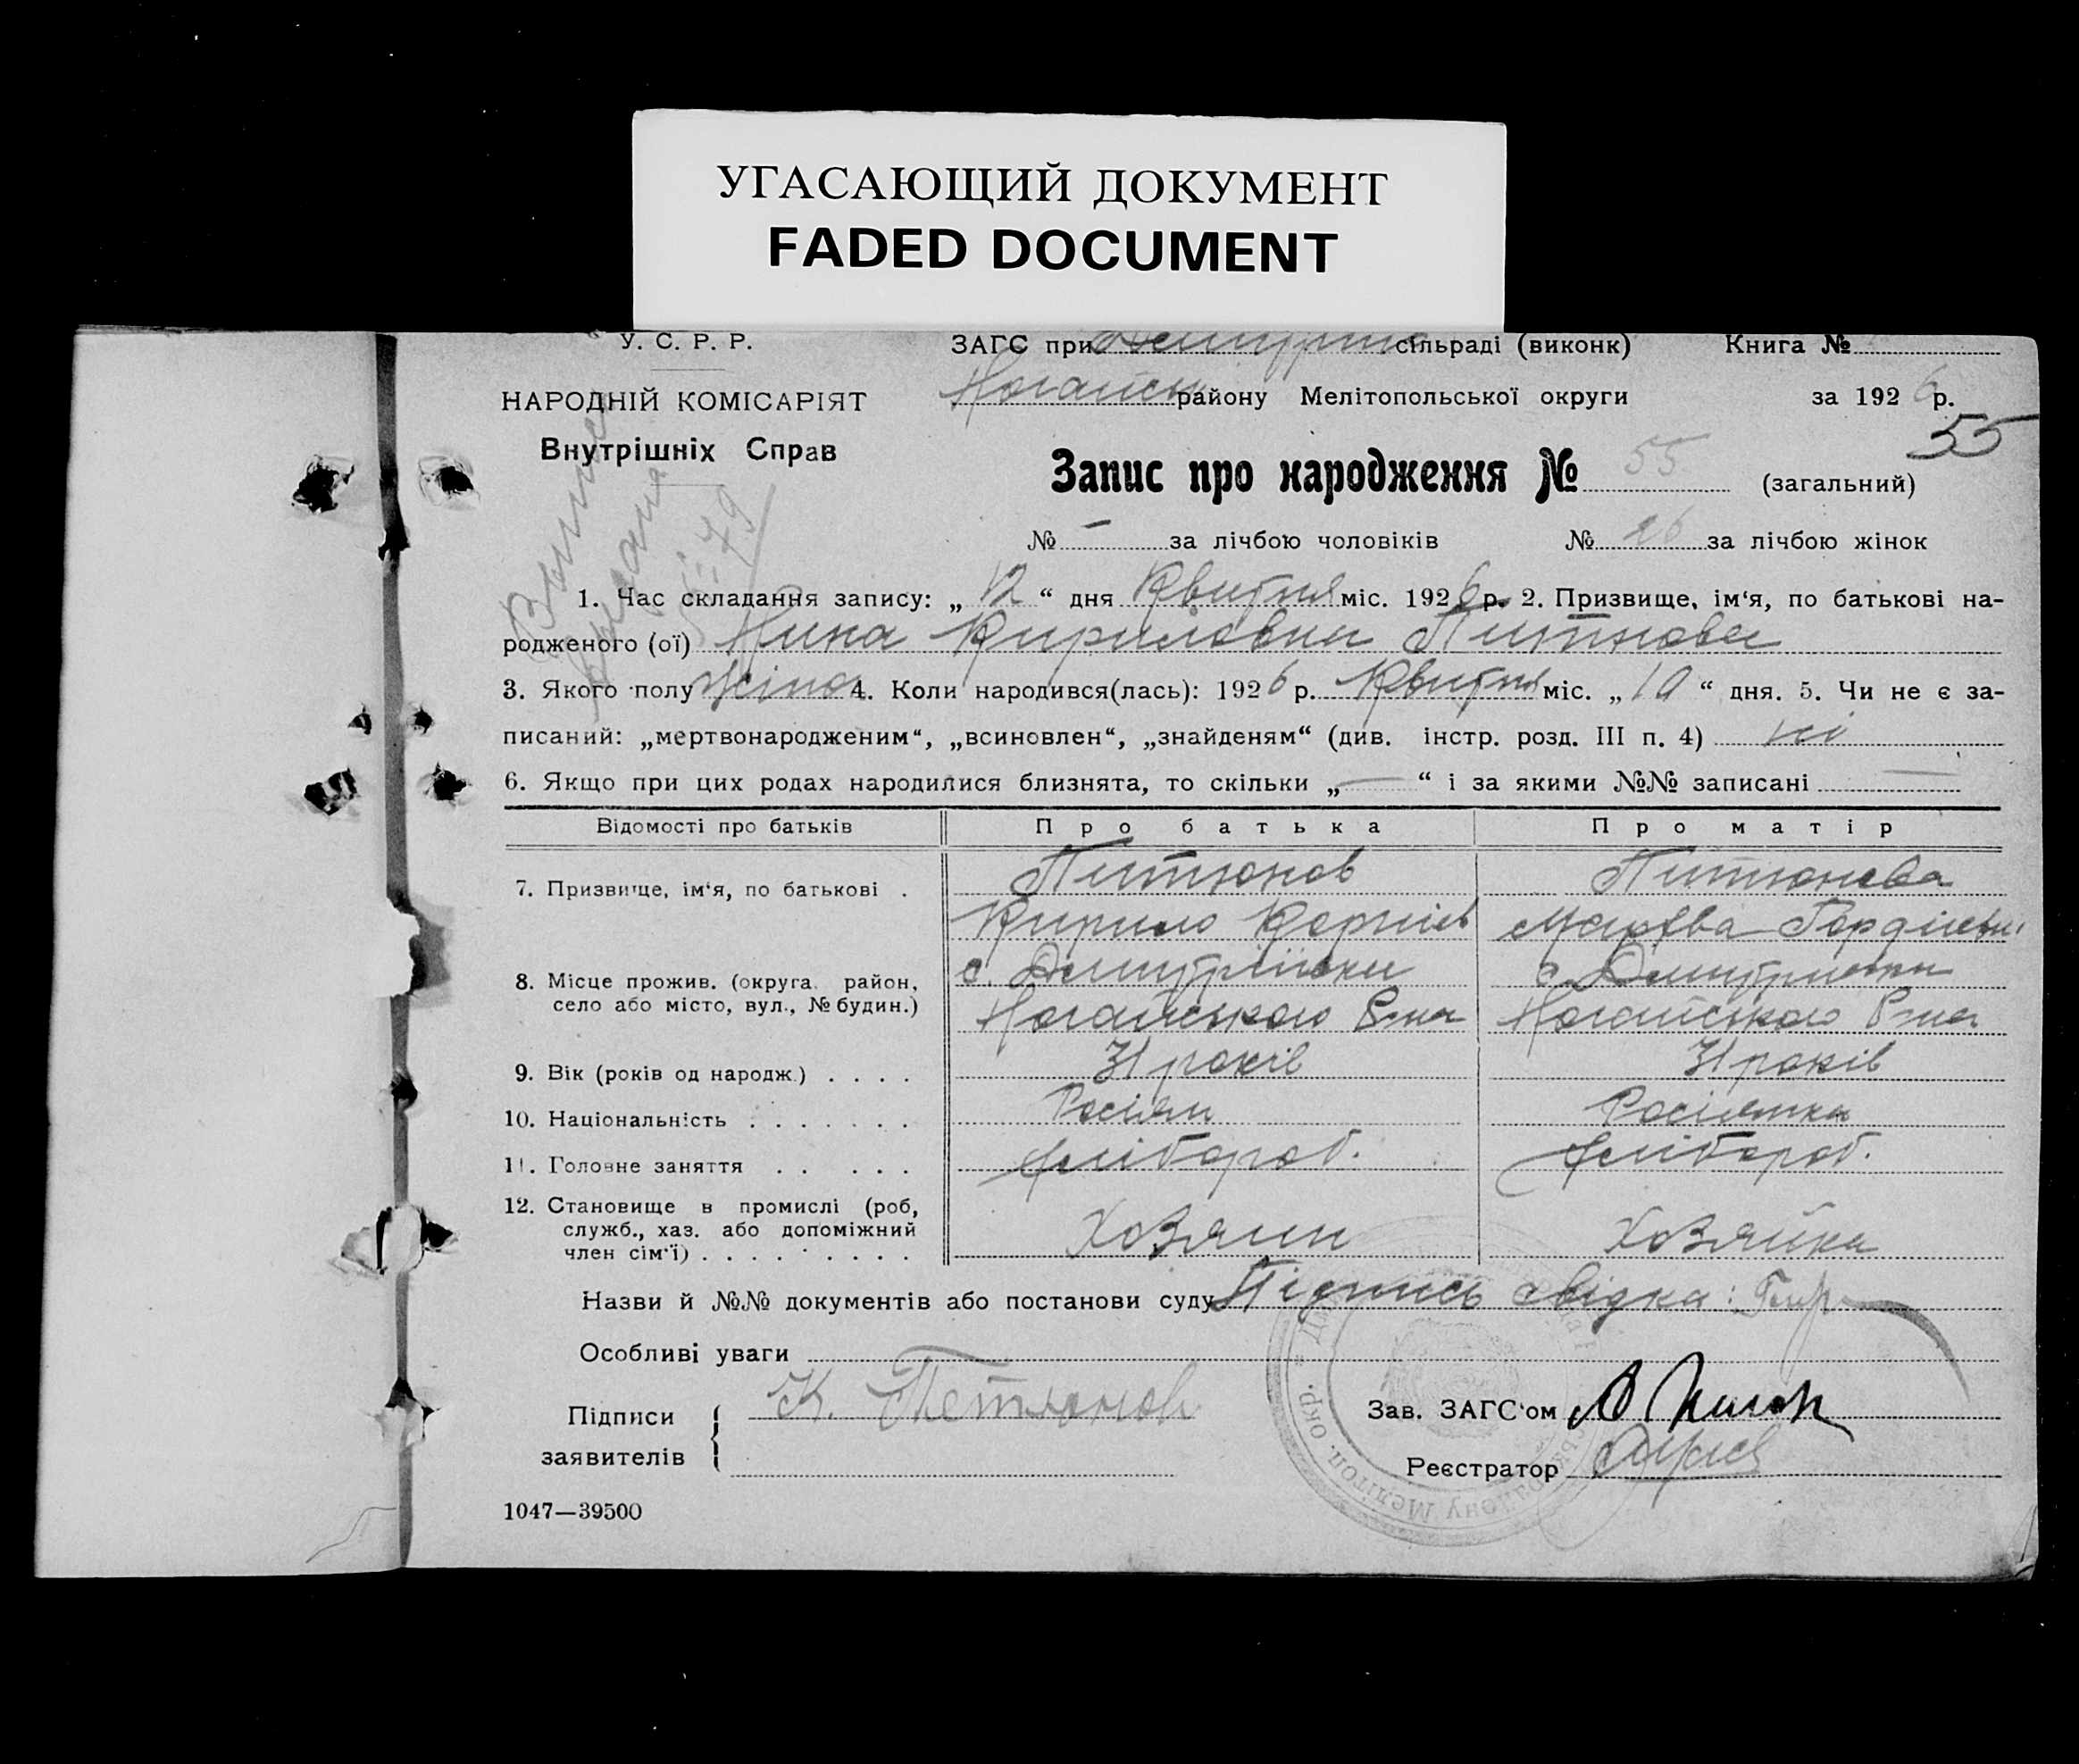 УГАСАЮЩИЙ ДОКУМЕНТ
FADED DOCUMENT
У. С. Р. Р.
ЗАГС при сільраді (виконк) Книга №
НАРОДНІЙ КОМІСАРІЯТ
Ногайськ району Мелітопольської округи за 1926 р.
Внутрішніх Справ
55
Запис про народження № 55 (загальний)
79
№ – за лічбою чоловіків № 26 за лічбою жінок
1. Час складання запису: „ 12 “ дня Квитня міс. 1926 р. 2. Призвище, ім‘я, по батькові на-
родженого (ої) Нина Кириловна
3. Якого полу жіноч 4. Коли народився(лась): 1926 р. Квитня міс. „ 10 “ дня. 5. Чи не є за-
писаний: „мертвонародженим“, „всиновлен“, „знайденям“ (див. інстр. розд. III п. 4) ні
6. Якщо при цих родах народилися близнята, то скільки „ — “ і за якими №№ записані —
Відомості про батьків Про батька Про матір
7. Призвище, ім‘я, по батькові . Питюнов Питюнова
Кирило Корніїв Гордіевн
8. Місце прожив. (округа, район, с. Дмитрівки с. Дмитривки
село або місто, вул., № будин.) Ногайського Р-на Ногайського Р-на
9. Вік (років од народж.) . . . . 31 років 31 років
10. Національність . . . . . . . Росіян Росіянка
11. Головне заняття . . . . . хлібороб. хлібороб.
12. Становище в промислі (роб,
служб., хаз. або допоміжний Хозяин Хозяйка
член сім‘ї) . . . . . . . . .
Назви й №№ документів або постанови суду Підпись свідка:
Особливі уваги
Підписи К. Петюнов Зав. ЗАГС‘ом
заявителів Реєстратор
1047—39500